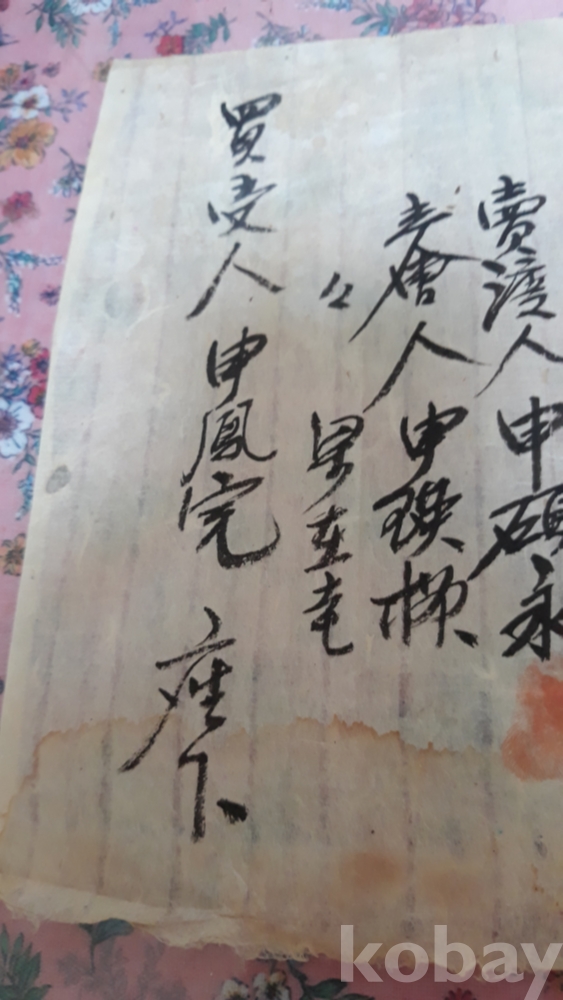 賣渡人 申碩永
立會人 申瑛樕
〃 梁在韋
買受人 申鳳完 座下
kobay